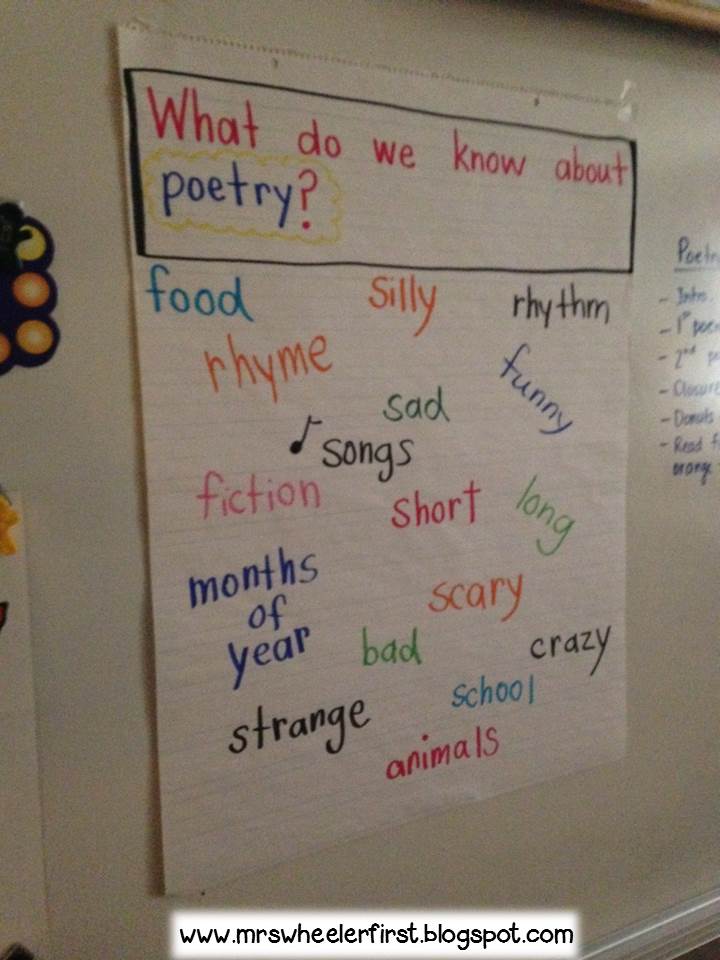 What do we know about
poetry?
food silly rhythm
rhyme funny
sad
songs
fiction short long
months
of
year
scary
bad crazy
strange school
animals
- Intro.
- 1st
- 2nd
- Closure
- Donuts
- Read
orange
www.mrswheelerfirst.blogspot.com